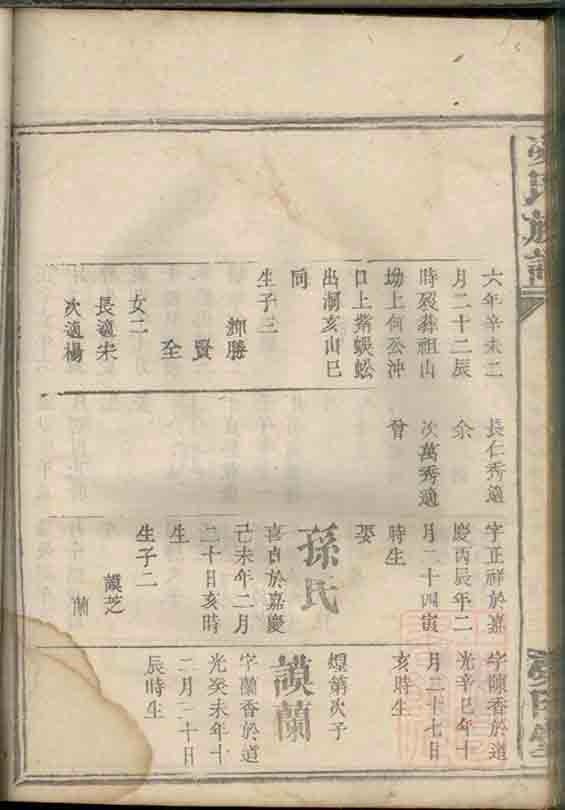 氏族譜
六年辛未二
月二十二辰
時歿葬祖山
坳上何公沖
口上嘴蜈蚣
出洞亥山巳
同
生子三
勝
賢
全
女二
長適朱
次適楊
長仁秀適
余
次萬秀適
曾
字正祥於嘉
慶丙辰年二
月二十四寅
時生
娶
孫氏
喜貞於嘉慶
己未年二月
二十日亥時
生
生子二
謨芝
蘭
字陳香於道
光辛巳年十
月二十七日
亥時生
煌第次子
謨蘭
字蘭香於道
光癸未年十
二月二十日
辰時生